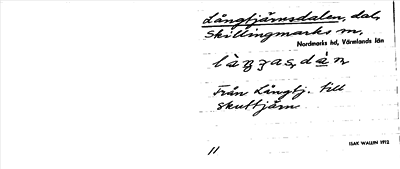 Långtjärnsdalen, dal,
Skillingmarks sn,
Nordmarks hd, Värmlands län
Från Långtj. till
skuttjärn
11
ISAK WALLIN 1972